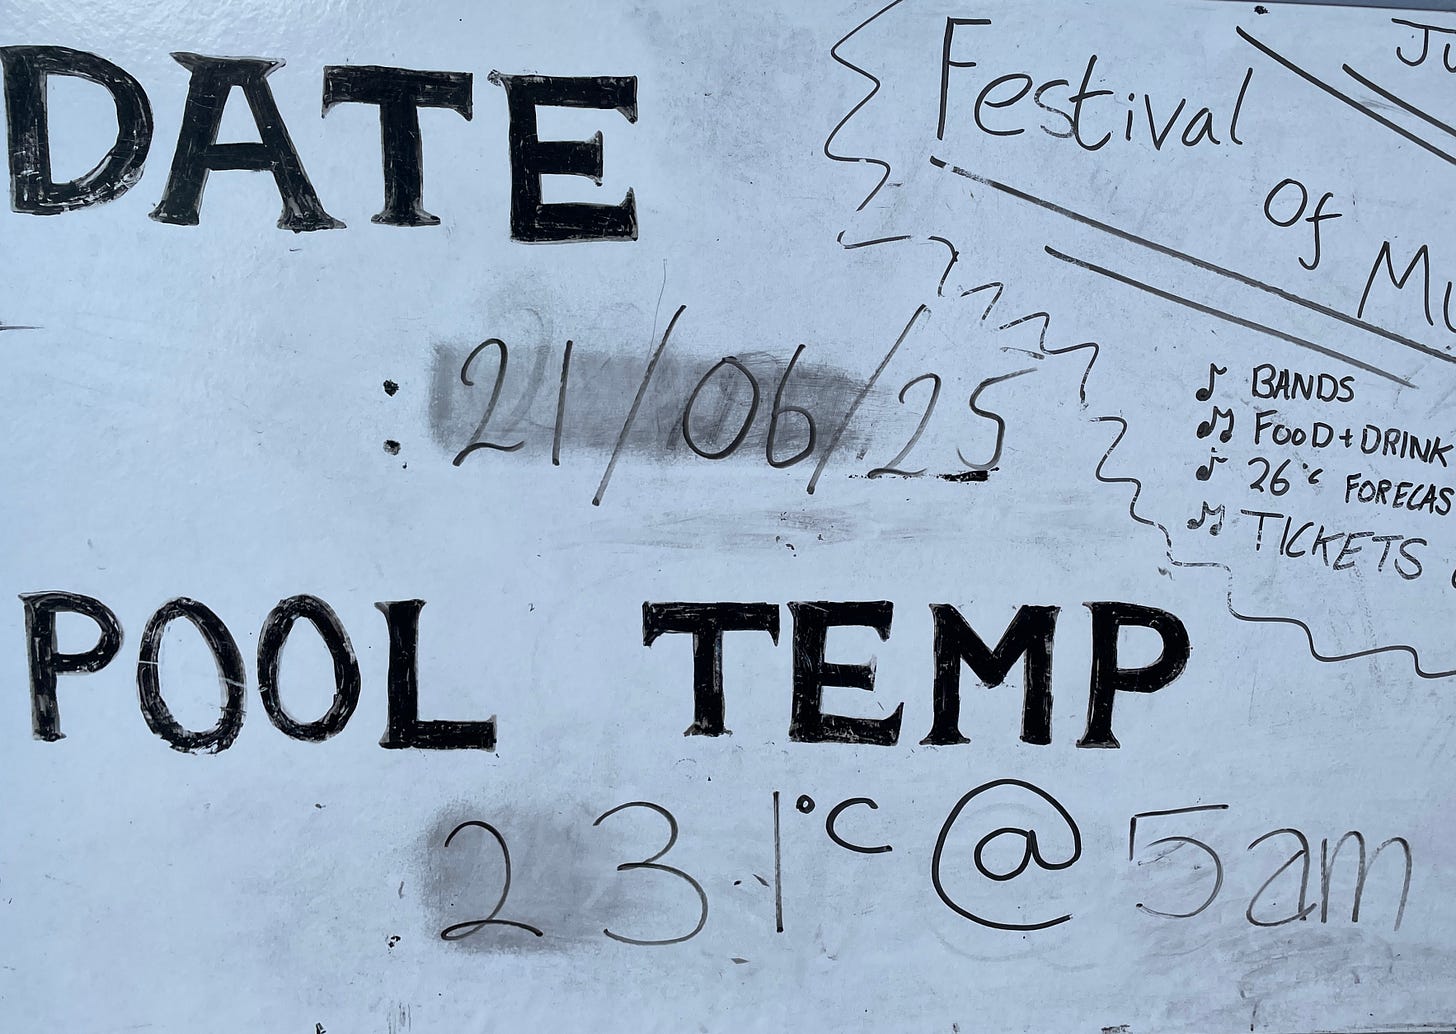 DATE
: 21/06/25
POOL TEMP
: 23.1°C @ 5am
Festival
Of
♪ BANDS
♫ FOOD + DRINK
♪ 26°C FORECAS
♫ TICKETS